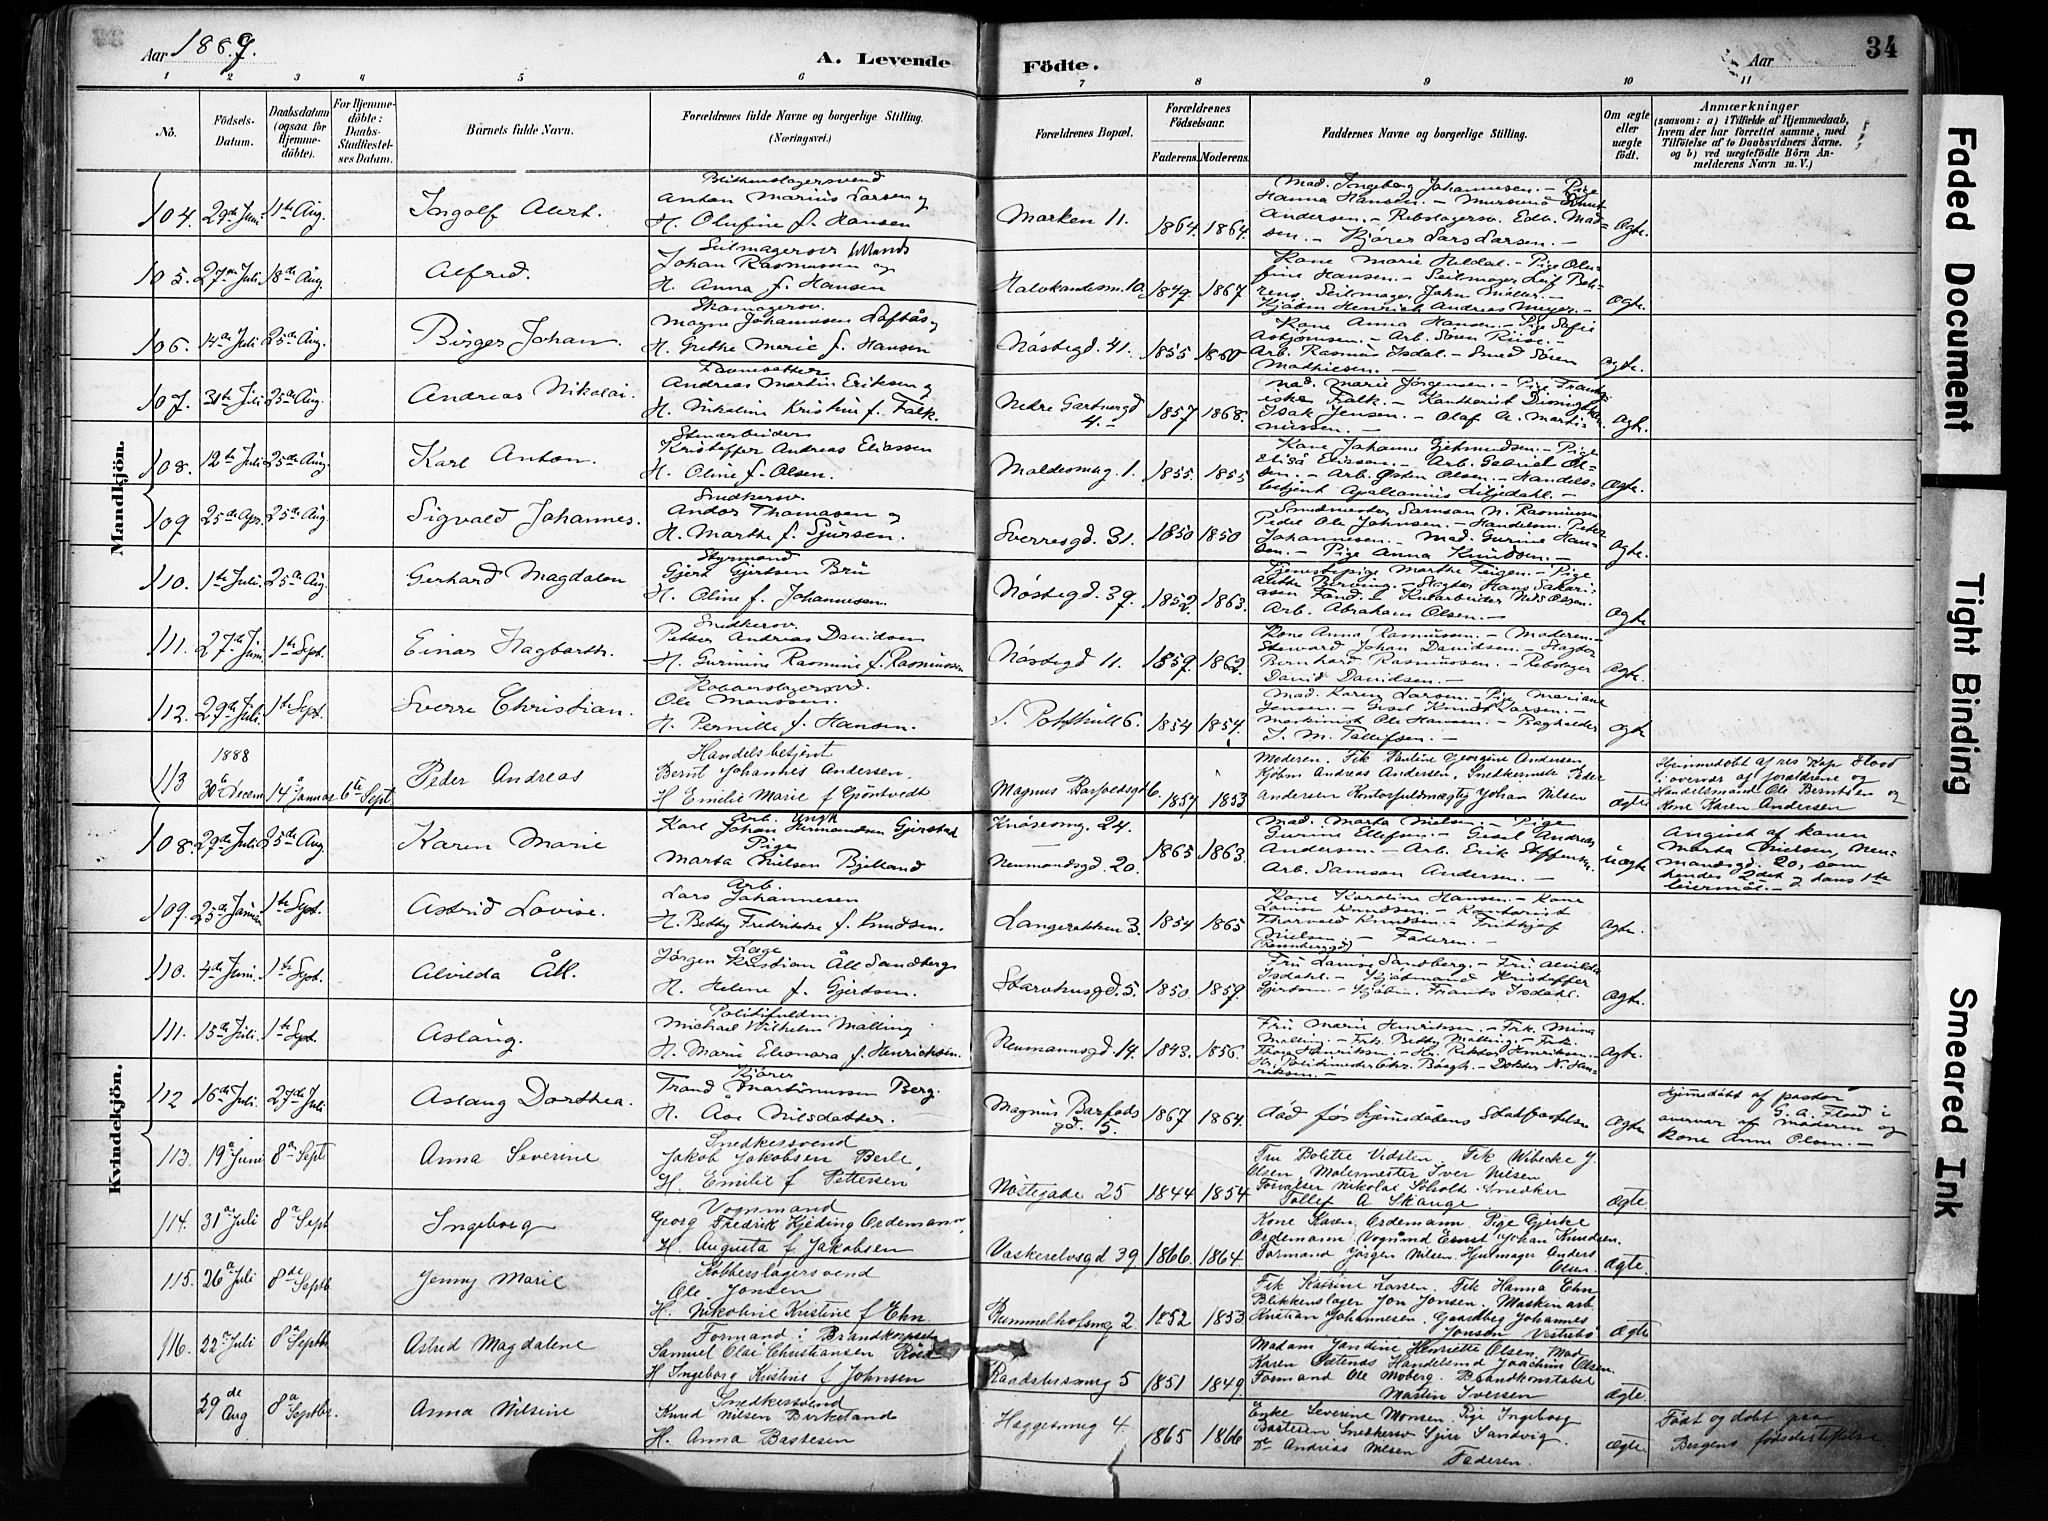 Aar 1889.
A. Levende Födte.
Aar
34
1 2 3 4 5 6 7 8 9 10 11
No.
Födsels-Datum.
Daabsdatum (ogsaa for Hjemme-döbte).
For Hjemme-döbte: Daabs-Stadfæstel-ses Datum.
Barnets fulde Navn.
Forældrenes fulde Navne og borgerlige Stilling. (Næringsvei.)
Forældrenes Bopæl.
Forældrenes Födselsaar.
Faderens. Moderens.
Faddernes Navne og borgerlige Stilling.
Om ægte eller uægte födt.
Anmærkninger
(saasom: a) i Tilfælde af Hjemmedaab, hvem der har forrettet samme, med Tilföielse af to Daabsvidners Navne. og b) ved uægtefödte Börn An-melderens Navn m. V.)
Mandkjön.
104. 29de Juni 11te Aug. Ingolf
Anton Marius Larsen og
H. Olufine f. Hansen
Marken 11. 1864. 1864.
Mad. Ingeborg Johannesen. – Pige
Hanna Hansen. –
Andersen. – Rebslagersv. Edv. Mad-
sen. – Kjörer Lars Larsen. –
Ægte.
105. 27de Juli 18de Aug. Alfred.
Johan Rasmussen og
H. Anna f. Hansen
1849 1867
Kone Marie Heldal. – Pige Olu-
fine Hansen. – Seilmager
Seilmager John Möller. –
Kjöbm Henrich Andreas Meyer. –
Ægte.
106. 14de Juli 25de Aug. Birger Johan.
Skomagersv.
Magne Johannesen Loftås og
H. Grethe Marie f. Hansen
Nöstegd. 41. 1855 1860
Kone Anna Hansen. – Pige Sofie
Asbjörnsen. – Arb. Sören Riise. –
Arb. Rasmus Isdal. – Smed Sören
Mathiesen. –
Ægte.
107. 31te Juli 25de Aug. Andreas Nikolai.
Andreas Martin Eriksen og
H. Nikoline Kristine f. Falk.
Nedre Gartnergd 4. – 1857 1868.
Mad. Marie Jörgensen. – Pige
Falk. –
Isak Jensen. – Olaf A. Marti-
nussen. –
Ægte.
108. 12te Juli 25de Aug. Karl Anton.
Stenarbeider
Kristoffer Andreas Eliassen
H. Oline f. Olsen.
Maldesmug 1. 1855. 1855
Kone Johanne Gjetmundsen – Pige
– Arb. Gabriel Ol-
sen. – Arb. Östen Olsen. – Handels-
betjent
Ægte.
109 25de Apr. 25de Aug Sigvald Johannes.
Snedkersv.
Andor Thomasen og
H. Marthe f. Sjursen.
Sverresgd. 31. 1850 1850
Smedmester Samson N. Rasmussen
Ole Johnsen. – Handelsm. Peter
Johannesen. – Mad. Gurine Han-
sen. – Pige Anna Knudsen. –
Ægte.
110. 1te Juli. 25de Aug. Gerhard Magdalon
Styrmand
Gjert Gjertsen Brú
H. Oline f. Johannesen.
Nöstegd. 39. 1852 1863.
Tjenestepige Marthe Teigen. – Pige
Nils Olsen.
Arb. Abraham Olsen. –
Ægte.
111. 27de Juni. 1te Sept. Einar Hagbarth.
Snedkersv.
Petter Andreas Davidsen
H. Gurinine Rasmine f. Rasmussen
Nöstegd 11. 1859. 1862.
Kone Anna Rasmussen. – Moderen. –
Steward Johan Davidsen. –
Bernhard Rasmussen. – Rebslager
David Davidsen. –
Ægte
112. 29de Juli. 1te Sept. Sverre Christian.
Kobberslagersvd.
Ole Monssen.
H. Pernille f. Hansen.
1854 1854.
Mad. Karen Larsen. – Pige Mariane
Jensen. – Gesel Knud Larsen. –
Maskinist Ole Hansen. – Bogholder
J. M. Tollefsen. –
Ægte
113 1888 30te Decem 14de Januar 6te Sept Peder Andreas
Handelsbetjent
Bernt Johannes Andersen.
H Emilie Marie f Gröntvedt
Magnus Barfodsgd 6. 1857 1853
Moderen. Frk Pauline Georgine Andersen
Kjöbm Andreas Andersen, Snedkermstr Peder
Andersen Kontorfuldmægtig Johan Nilsen
Ægte
Hjemmedöbt af res. Kap Flood
i overvær af forældrene og
Handelsmand Ole Berntsen og
Kone Karen Andersen
Kvindekjön.
108. 29de Juli 25de Aug. Karen Marie
Arb. Ungk
Karl Johan Hermandsen Gjerstad
Pige
Marta Nielsen Bjelland
Knösesmg. 24.
Neumandsgd. 20. 1865 1863.
Mad. Marta Nielsen. – Pige
Gurine Ellefsen. – Gesel Andreas
Andersen. – Arb. Erik Steffensen
Arb. Samson Andersen. –
Uægte
Angivet af konen
Marta Nielsen, Neu-
mandsgd. 20, som
hendes 2det og hans 1te
leiermål. –
109. 25de Januar 1te Sept. Astrid Lovise.
Arb.
Lars Johannesen
H. Betty Fredrikke f. Knudsen.
Langerækken 3. 1854 1865
Kone Karoline Hansen. – Kone
Lovise Knudsen. – Kontorist
Thorvald Knudsen. – Fridtjof
Nielsen – Faderen. –
Ægte.
110. 4de Juni. 1te Sept. Alvilda Åll.
Læge
Jörgen Kristian Åll Sandberg
H. Helene f. Gjertsen.
5. 1850. 1859.
Fru Lovise Sandberg. – Fru Alvilda
Isdahl. – Kjöbmand Kristoffer
Gjertsen. – Kjöbm. Frants Isdahl.
Ægte.
111. 15de Juli. 1te Sept. Aslaug.
Politifuldm.
Michael Wilhelm Malling
H. Marie Eleonora f. Henrichsen.
Neumannsgd. 14. 1843. 1856.
Fru Marie Henriksen. – Frk. Mina
Malling. – Frk. Betty Malling. – Frk.
Thora Henriksen. – Hr. Rektor Henriksen. –
Hr. Politimester Chr. Bösgh. – Doktor N. Hen-
riksen. –
Ægte.
112 16de Juli. 27de Juli Aslaug Dorthea.
Kjörer
Trond Martinussen Berg.
H. Åse Nilsdatter.
Magnus Barfods gd. 15. 1867 1864.
död för hjemmedåbens Stadfæstelse
Ægte
Hjemmedöbt af pastor
G. A. Flood i
overvær af moderen og
kone Anne Olsen. –
113. 19de Juni 8de Sept Anna Severine
Snedkersvend
Jakob Jakobsen Berle,
H. Emilie f Pettersen
Nöstegade 25 1844 1854
Fru Bolette Vidsten. Frk Wibecke J.
Olsen, Malermester Iver Nilsen
Forvalter Nikolai Scholt. Snedker
Tollef A Skauge.
Ægte
114. 31de Juli 8de Sept Ingeborg
Vognmand
Georg Fredrik Hjeding Ordemann,
H. Augusta f Jakobsen
Vaskerelvsgd 39 1866. 1864
Kone Karen Ordemann, Pige Gjerke
Ordemann Vognmd Ernst Johan Knudsen.
Formand Jörgen Nilsen. Hjulmager Anders
Olsen.
Ægte.
115. 26de Juli 8de Septb. Jenny Marie
Kobberslagersvend
Ole Jonsen
H. Nikoline Kristine f Ehn
Rummelhofsmg 2. 1852 1853
Frk Katrine Larsen. Frk Hanna Ehn
Blikkenslager Jon Jonsen. Maskinarb.
Kristian Johannesen. Gaardbg Johannes
Jonsen Vestrebö
Ægte
116. 22de Juli 8de Septb. Astrid Magdalene
Formand i Brandkorpset
Samuel Olai Christiansen
H Ingeborg Kristine f Johnsen
Raadstusmug 5 1851 1849
Madam Jandine Henriette Olsen, Mad
Karen Östenes Handelsmd Joachim Olsen.
Formand Ole Moberg. Brandkonstabel
Martin Iversen
Ægte
29de Aug 8de Septbr. Anna Nilsine
Snedkersvend
Knud Nilsen Birkeland
H. Anna Bastesen
Heggesmug 4. 1865 1866
Enke Severine Monsen. Pige Ingeborg
Bastesen Snedkersv Sjur Sandvig.
Do Andreas Nilsen
Faderen.
Ægte
Födt og döbt paa
Bergens födselsstiftelse
Faded Document
Tight Binding
Smeared Ink